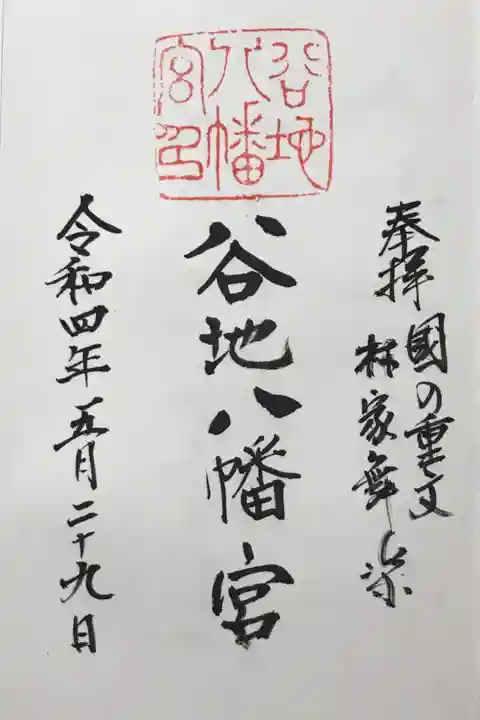 奉拝
國の重文
林家舞楽
谷地
八幡
宮印
谷地八幡宮
令和四年五月二十九日